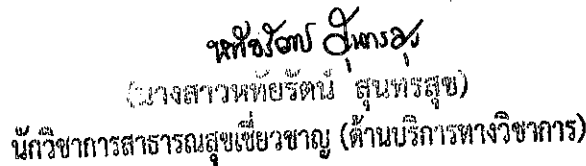 หทัยรัตน์ สุนทรสุข
(นางสาวหทัยรัตน์ สุนทรสุข)
นักวิชาการสาธารณสุขเชี่ยวชาญ (ด้านบริการทางวิชาการ)